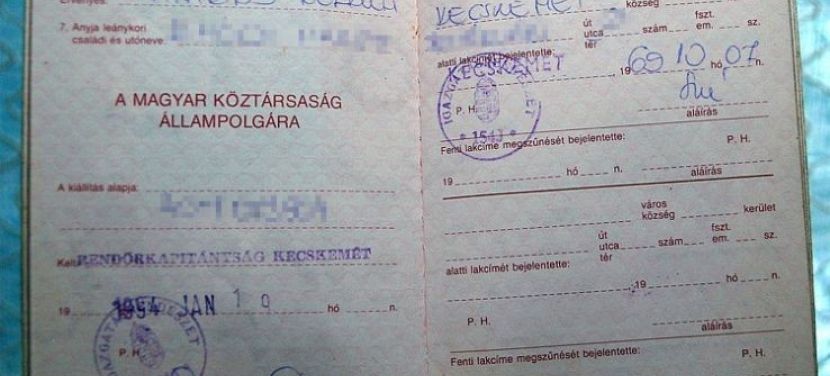 Érvényes:
7. Anyja leánykori
családi és utóneve:
A MAGYAR KÖZTÁRSASÁG
ÁLLAMPOLGÁRA
A kiállítás alapja:
Kelt: RENDŐRKAPITÁNYSÁG KECSKEMÉT
19 1994 JAN 10 hó n.
P. H.
KECSKEMÉT
község
út
utca szám fszt. em. sz.
tér
alatti lakcímét bejelentette:
KECSKEMÉT
19 69 10 hó 07 n.
P. H.
* 1543 *
aláírás
Fenti lakcíme megszűnését bejelentette: P. H.
19 hó n.
aláírás
város
község kerület
út
utca szám fszt. em. sz.
tér
alatti lakcímét bejelentette:
, 19 hó n.
P. H.
aláírás
Fenti lakcíme megszűnését bejelentette: P. H.